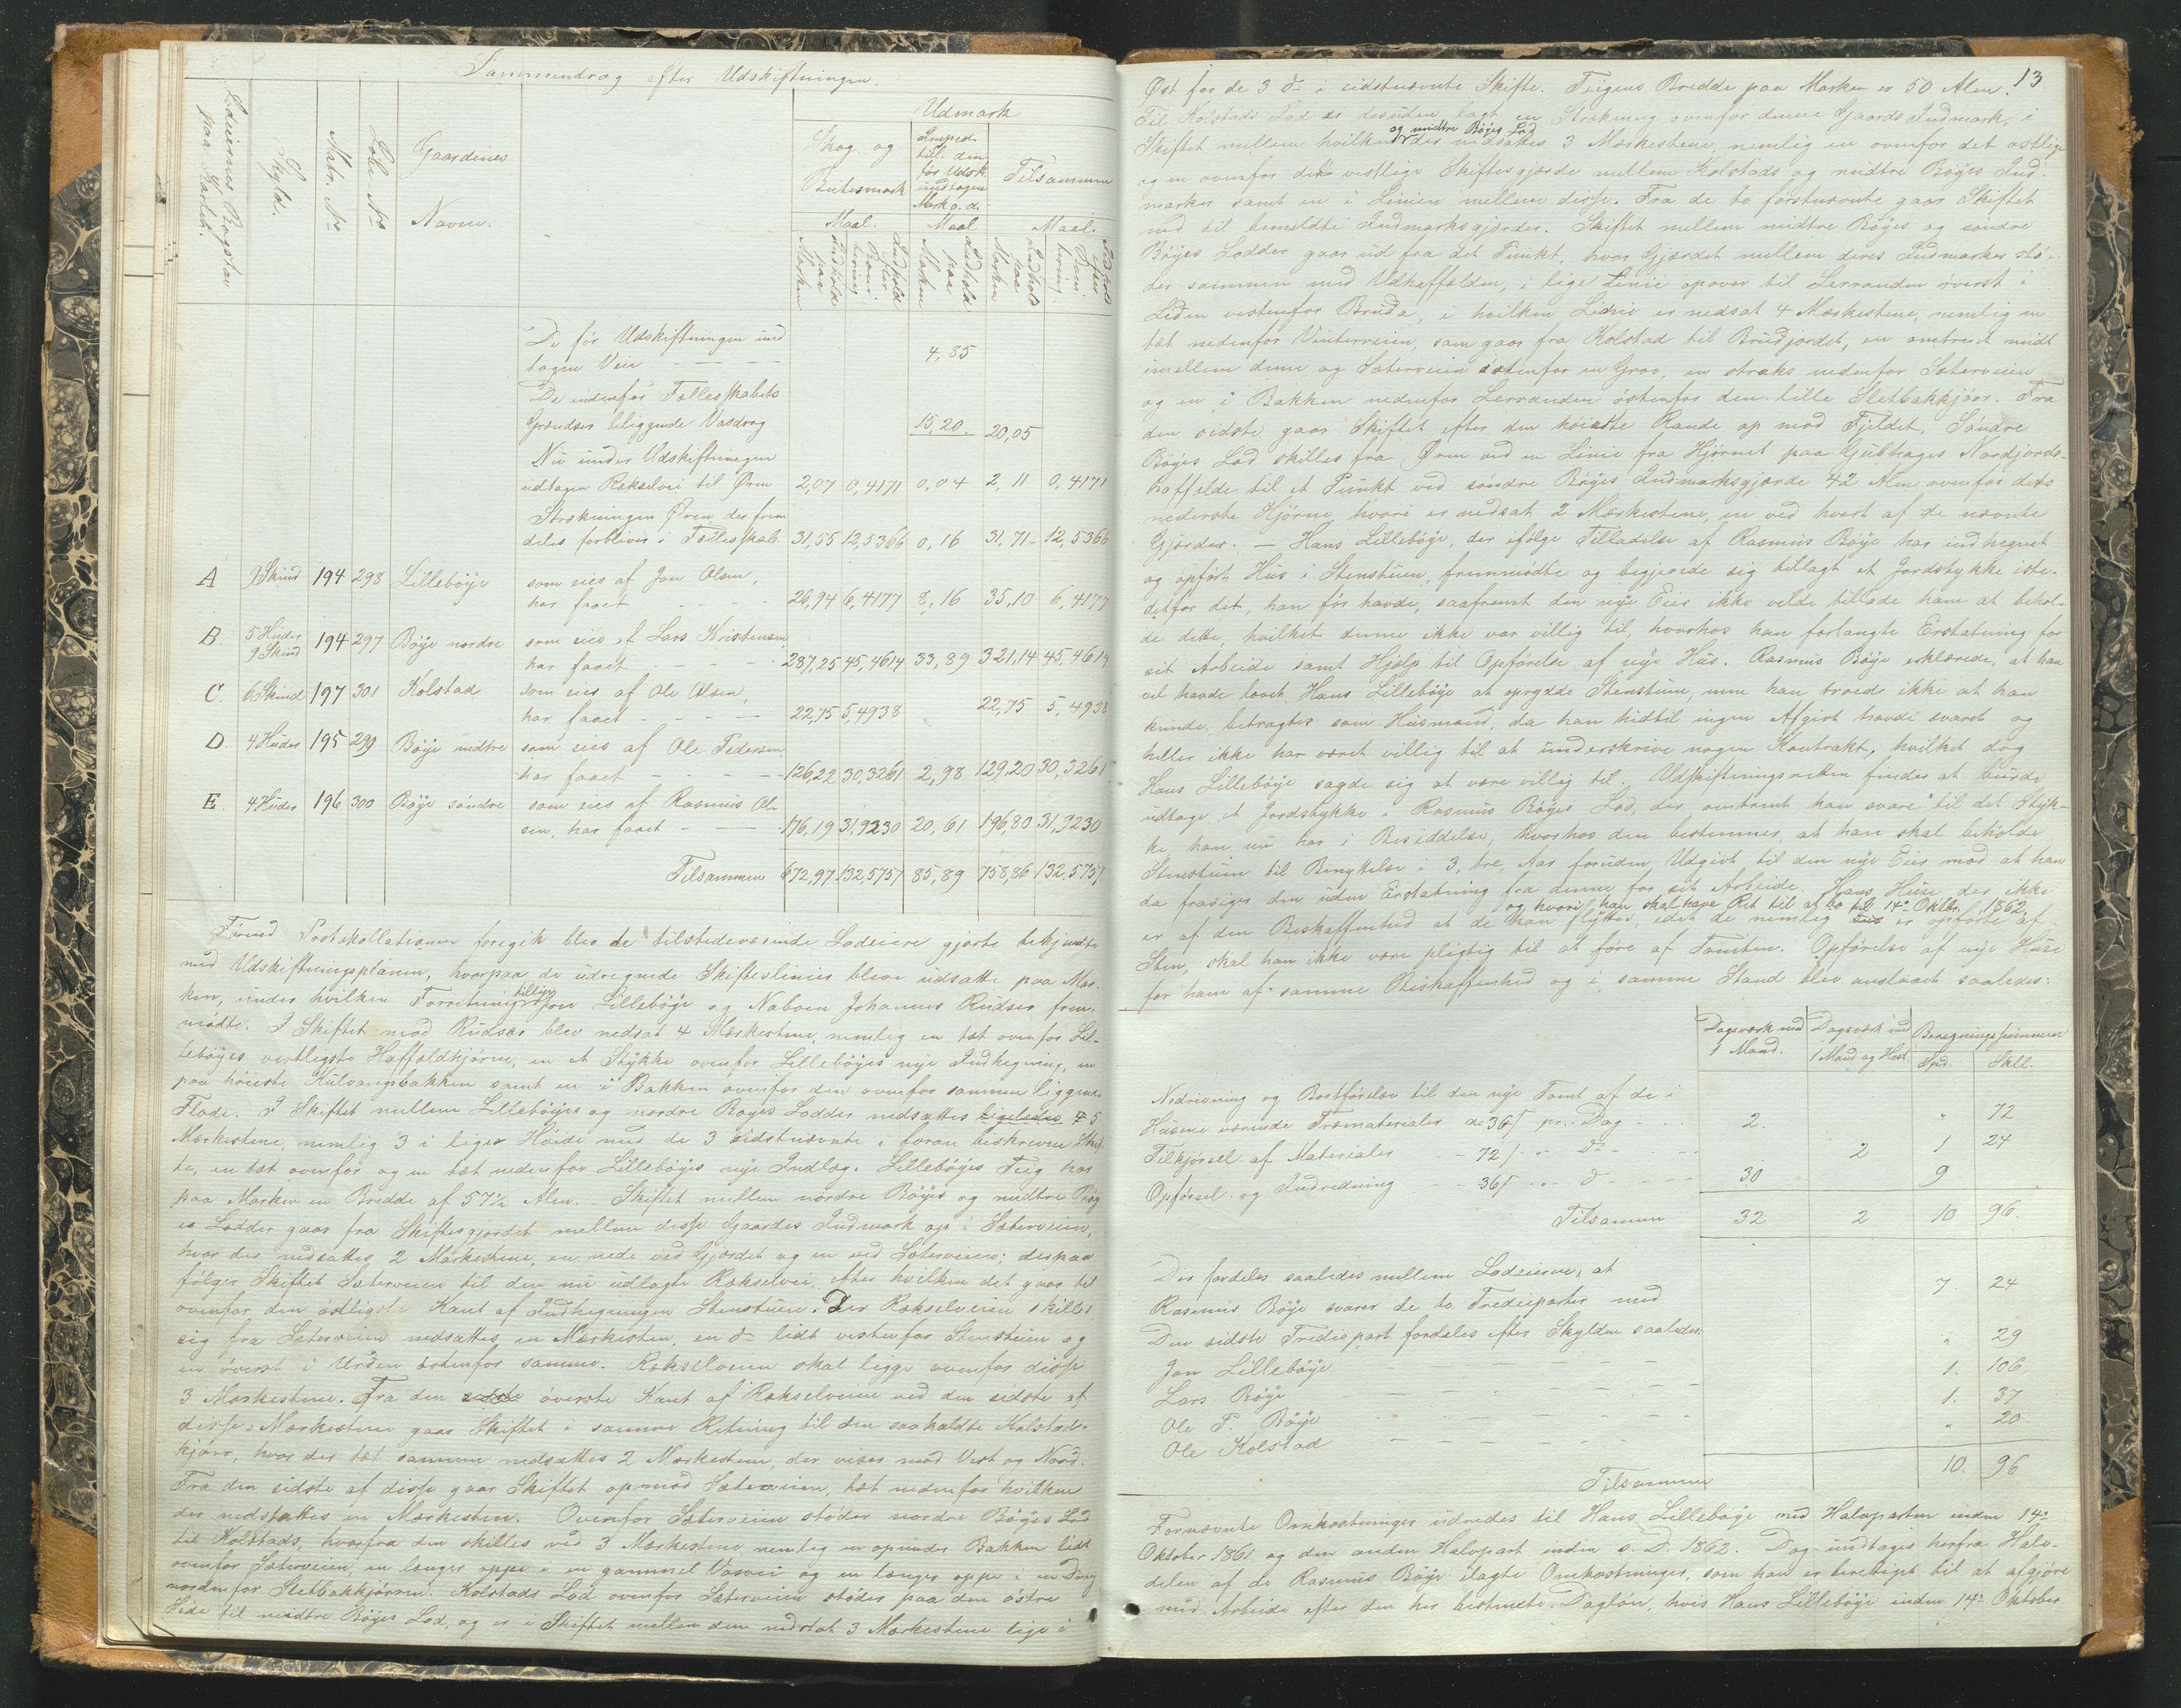 Sammendrag efter Udskiftningen.
Lodeiernes Bogstav paa Kartet.
Skyld.
Matr. No
Løbe No
Gaardenes
Navn.
Udmark
Skog og Beitesmark
Imped. till. den før Udsk. undtagen Mark o.d.
Tilsammen
Maal. Maal Maal.
Indhold paa Marken
Indhold efter Bonitering
Indhold paa Marken
Indhold paa Marken
Indhold efter Bonitering.
De før Udskiftningen und
tagen Veie - - - 4,85
De indenfor Fællesskabets
Grændser beliggende Vasdrag 15,20. 20,05
Nu under Udskiftningen
udtagen Rækselvei til Øren 2,07 0,4171 0,04 2,11 0,4171
Strækningen Øren der frem
deles forbliver i Fællesskab 31,55 12,5366 0,16 31,71 12,5366
A 9 Skind 194 298 Lillebøye som eies af Jon Olsen,
har faaet - - - 26,94 6,4177 8,16 35,10 6,4177
B. 5 Huder 9 Skind 194 297 Bøye nordre som eies af Lars Kristensen
har faaet - - - 287,25 45,4614 33,89 321,14 45,4614
C. 6 Skind 197 301 Kolstad som eies af Ole Olsen,
har faaet - - - 22,75 5,4938 22,75 5,4938
D. 4 Huder 195 299 Bøye midtre som eies af Ole Pedersen
har faaet - - - 126,22 30,3261 2,98 129,20 30,3261
E. 4 Huder 196 300 Bøye søndre som eies af Rasmus Ol-
sen, har faaet - - 176,19 31,9230 20,61 196,80 31,9230
Tilsammen 672,97 132,5757 85,89 758,86 132,5757
Førend Protokollationen foregik blev de tilstedeværende Lodeiere gjorte bekjendte
med Udskiftningsplanen, hvorpaa de udregnede Skifteslinier bleve udsatte paa Mar-
ken, under hvilken Forretning tillige Jon Lillebøye og Naboen Johannes Rudser frem-
mødte. I Skiftet mod Rudser blev nedsat 4 Mærkestene, nemlig en tæt ovenfor Lil-
lebøyes vestligste Haffældhjørne, en et Stykke ovenfor Lillebøyes nye Indhegning, en
paa høieste Kulvangsbakken samt en i Bakken ovenfor den ovenfor samme liggende
Flade. I Skiftet mellem Lillebøyes og nordre Bøyes Lodder nedsættes ligeledes 5
Mærkestene, nemlig 3 i lige Høide med de 3 sidstnævnte i foran beskrevne Skif-
te, en tæt ovenfor og en tæt nedenfor Lillebøyes nye Indlæg. Lillebøyes Teig har
paa Marken en Bredde af 57½ Alen. - Skiftet mellem nordre Bøyes og midtre Bøy-
es Lodder gaar fra Skiftesgjerdet mellem disse Gaardes Indmark op i Sæterveien,
hvor der nedsættes 2 Mærkestene, en nede ved Gjerdet og en ved Sæterveien; derpaa
følger Skiftet Sæterveien til den nu udlagte Rækselvei, efter hvilken det gaar til
ovenfor den østligste Kant af Indhegningen Stenstuen. Der Rækselveien skiller
sig fra Sæterveien nedsættes en Mærkesten, en do lidt vestenfor Stenstuen og
en øverst i Urden østenfor samme. Rækselveien skal ligge ovenfor disse
3 Mærkestene. Fra den øverste Kant af Rækselveien ved den sidste af
disse Mærkestene gaar Skiftet i samme Retning til den saakaldte Kolstad-
kjærr, hvor der tæt sammen nedsættes 2 Mærkestene, der viser mod Vest og Nord.
Fra den sidste af disse gaar Skiftet opmod Sæterveien, tæt nedenfor hvilken
der nedsættes en Mærkesten. Ovenfor Sæterveien støder nordre Bøyes Lod
til Kolstads, hvorfra den skilles ved 3 Mærkestene nemlig en opunder Bakken lidt
ovenfor Sæterveien, en længer oppe i en gammel Vasvei og en længer oppe i en Drag
nordenfor Sletbakkjørren. Kolstads Lod ovenfor Sæterveien støder paa den østre
Side til midtre Bøyes Lod, og er i Skiftet mellem dem nedsat 3 Mærkestene lige i
13
Øst for de 3 do i sidstnævnte Skifte. Teigens Bredde paa Marken er 50 Alen.
Til Kolstads Lod er desuden lagt en Strækning ovenfor denne Gaards Indmark, i
Skiftet mellem hvilken og midtre Bøyes Lod der nedsættes 3 Mærkestene, nemlig en ovenfor det østlige
og en ovenfor det vestlige Skiftesgjerde mellem Kolstads og midtre Bøyes Ind-
marker samt en i Linien mellem disse. Fra de to førstnævnte gaar Skiftet
ned til bemeldte Indmarksgjerder. Skiftet mellem midtre Bøyes og søndre
Bøyes Lodder gaar ud fra det Punkt, hvor Gjerdet mellem deres Indmarker stø-
der sammen med Udhaffælden, i lige Linie opover til Lerranden øverst i
Liden vestenfor Bruda, i hvilken Linie er nedsat 4 Mærkestene, nemlig en
tæt nedenfor Vinterveien, som gaar fra Kolstad til Brudjordet, en omtrent midt
imellem denne og Sæterveien østenfor en Grav, en straks nedenfor Sæterveien
og en i Bakken nedenfor Lerranden østenfor den lille Sletbakkjørr. Fra
den sidste gaar Skiftet efter den høieste Rande op mod Fjeldet. Søndre
Bøyes Lod skilles fra Øren ved en Linie fra Hjørnet paa Gubhages Nordjords-
haffælde til et Punkt ved søndre Bøyes Indmarksgjerde 42 Alen ovenfor dets
nederste Hjørne, hvori er nedsat 2 Mærkestene, en ved hvert af de nævnte
Gjerder. — Hans Lillebøye, der ifølge Tilladelse af Rasmus Bøye har indhegnet
og opført Hus i Stenstuen, fremmødte og begjerede sig tillagt et Jordstykke iste-
detfor det, han før havde, saafremt den nye Eier ikke vilde tillade ham at behol-
de dette, hvilket denne ikke var villig til, hvorhos han forlangte Erstatning for
sit Arbeide samt Hjælp til Opførelse af nye Hus. Rasmus Bøye erklærede, at han
vel havde lovet Hans Lillebøye at oprydde Stenstuen, men han troede ikke at han
kunde betragtes som Husmand, da han hidtil ingen Afgivt havde svaret og
heller ikke har været villig til at underskrive nogen Kontrakt, hvilket dog
Hans Lillebøye sagde sig at være villig til. Udskiftningsretten findes at burde
udtage et Jordstykke i Rasmus Bøyes Lod, der omtrent kan svare til det Styk-
ke, han nu har i Besiddelse, hvorhos den bestemmer, at han skal beholde
Stenstuen til Benyttelse i 3, tre, Aar foruden Udgivt til den nye Eier mod at han
da frasiges den uden Erstatning fra denne for sit Arbeide. Hans Huse, der ikke
og hvori han skal have Ret til at bo til 14de Oktbr. 1862,
er af den Beskaffenhed at de kan flyttes, idet de nemlig er opførte af
Sten, skal han ikke være pligtig til at føre af Tomten. Opførelse af nye Huse
for ham af samme Beskaffenhed og i samme Stand blev anslaaet saaledes:
Dagsværk med 1 Mand. Dagsværk med 1 Mand og Hest Beregningssummen
Spd. Skill.
Nedrivning og Bortførelse til den nye Tomt af de i
Husene værende Træmaterialer a 36 s pr. Dag - - 2. " 72
Tilkjørsel af Materialer - - 72 s - - do - - 2 1 24
Opførsel og Indredning - - 36 s - - do - - 30 9
Tilsammen 32 2 10 96.
Der fordeles saaledes mellem Lodeierne, at
Rasmus Bøye svarer de to Tredieparter med 7 24
Den sidste Trediepart fordeles efter Skylden saaledes:
Jon Lillebøye - - - " 29
Lars Bøye - - - 1. 106
Ole P. Bøye - - - 1. 37
Ole Kolstad - - - " 20
Tilsammen 10. 96
Fornævnte Omkostninger udredes til Hans Lillebøye med Halvparten inden 14de
Oktober 1861 og den anden Halvpart inden s. D. 1862. Dog undtages herfra Halv-
delen af de Rasmus Bøye ilagte Omkostninger, som han er berettiget til at afgjøre
med Arbeide efter den her bestemte Dagløn, hvis Hans Lillebøye inden 14de Oktober